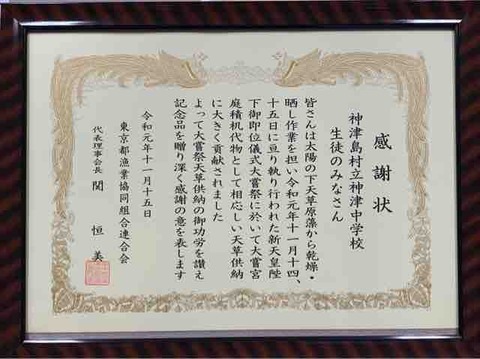 感謝状
神津島村立神津中学校
生徒のみなさん
皆さんは太陽の下天草原藻から乾燥・
晒し作業を担い令和元年十一月十四、
十五日に亘り執り行われた新天皇陛
下御即位儀式大嘗祭に於いて大嘗宮
庭積机代物として相応しい天草供納
に大きく貢献されました
よって大嘗祭天草供納の御功労を讃え
記念品を贈り深く感謝の意を表します
令和元年十一月十五日
東京都漁業協同組合連合会
代表理事会長 関 恒美